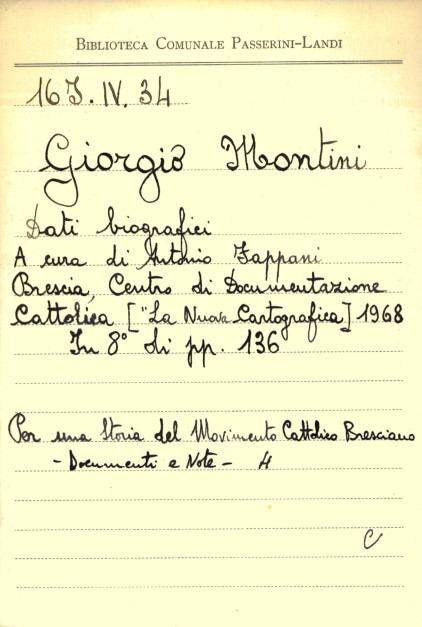 BIBLIOTECA COMUNALE PASSERINI-LANDI
16 J. IV. 34
Giorgio Montini
Dati biografici
A cura di Antonio Fappani
Brescia, Centro di Documentazione
Cattolica ["La Nuova Cartografica] 1968
In 8° di pp. 136
Per una Storia del Movimento Cattolico Bresciano
- Documenti e Note - 4
C